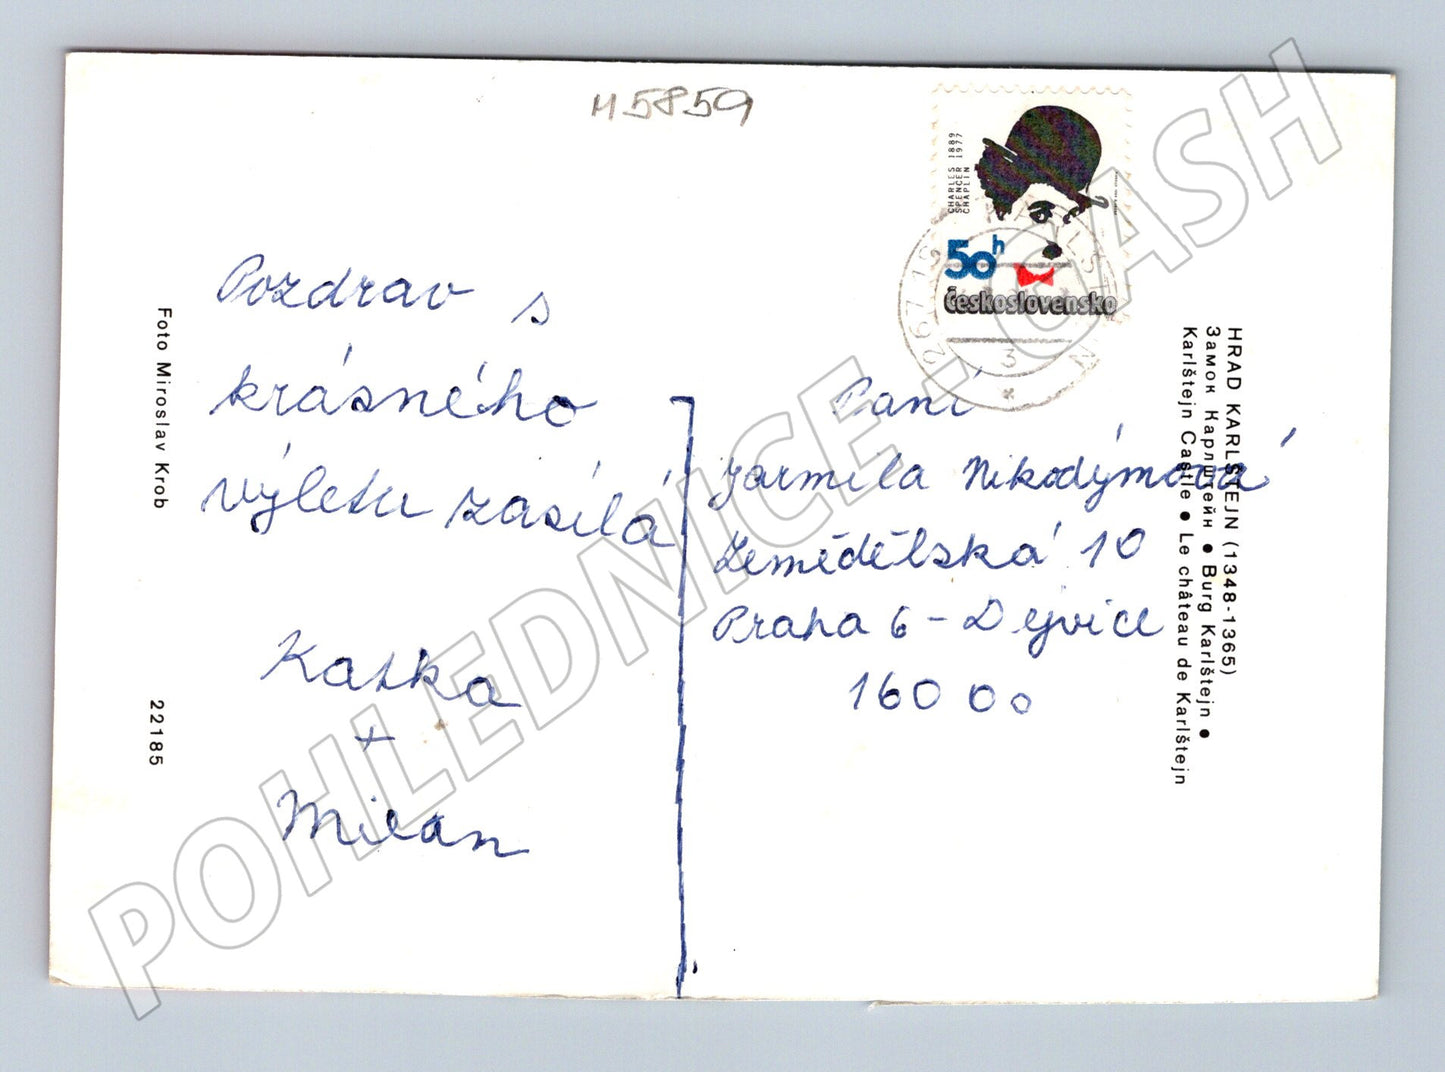 M5859
CHARLES 1889
SPENCER 1977
CHAPLIN
50h
Československo
267 18
3
*
Pozdrav s
krásného
výletu zasílá
Katka
+
Milan
Paní
Jarmila Nikodýmová
Zemědělská 10
Praha 6 - Dejvice
160 00
HRAD KARLŠTEJN (1348-1365)
Замок Карлштейн ● Burg Karlštejn ●
Karlštejn Castle ● Le château de Karlštejn
Foto Miroslav Krob
22185
POHLEDNICE.CASH